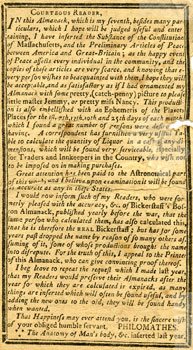 COURTEOUS READER,
IN this ALMANACK, which is my seventh, besides many par-
ticulars, which I hope will be judged useful and enter-
taining, I have inserted the Substance of the Constitution
of Massachusetts, and the Preliminary Articles of Peace
between America and Great-Britain; as the happy event
of Peace affects every individual in the community, and the
copies of these articles are very scarce, and knowing that e-
very person wishes to be acquainted with them, I hope they will
be acceptable, and as satisfactory as if I had ornamented its
Almanack with some pretty, (catch-penny) picture to please
little master Jemmy, or pretty miss Nancy. This produc-
tion is also embellished with an Ephemeris of the Planets
Places for the 1st, 7th, 13th, 19th and 25th days of each month,
which I found a great number of readers were desirous of
having. A correspondent has furnished me with a Ta-
ble to calculate the quantity of Liquor in a cask of any di-
mensions, which will be found very serviceable, specially
for Traders and Innkeepers in the Country, who wish not
to be imposed on in making purchases.
Great attention has been paid to the Astronomical part
this work, and I believe upon examination it will be found
accurate as any in these States.
I would now inform such of my Readers, who were for-
merly pleased with the accuracy, &c. of Bickerstaff's Bos-
ton Almanack, published yearly before the war, that the
same person who calculated them, has also calculated this;
that he is therefore the REAL Bickerstaff; but has for some
years past dropped the name by reason of so many others as-
suming of it, some of whose productions brought the name
into disrepute. For the truth of this, I appeal to the Printer
of this Almanack, who can give convincing proof thereof.
I beg leave to repeat the request which I made last year,
that my Readers would preserve their Almanacks after the
year for which they are calculated is expired, as many
things are inserted which will often be found useful, and by
adding the new ones to the old, they will be found handy
when wanted.
That Happiness may ever attend you, is the sincere wish
of your obliged humble servant. PHILOMATHES.
The Anatomy of Man's body, &c. inserted last year